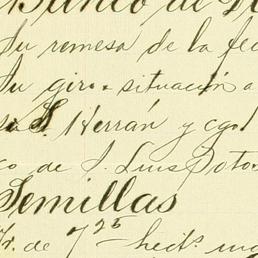 Banco de
Su remesa de la fec
Su giro situación a
S. Herrán y cgo/
co de S. Luis Potos
Semillas
Fr. de 7 25 hects